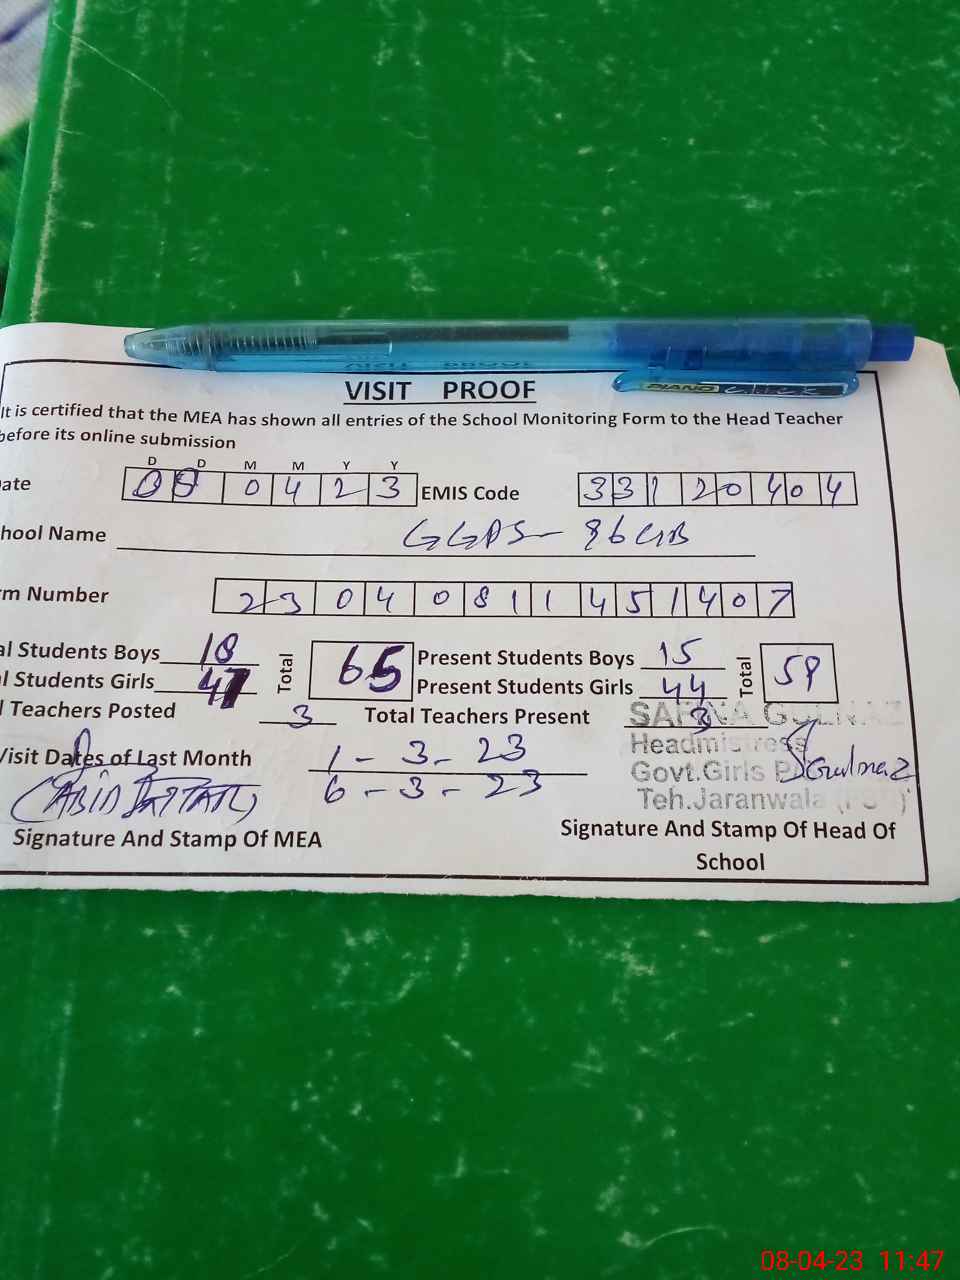 PIANO click
VISIT PROOF
It is certified that the MEA has shown all entries of the School Monitoring Form to the Head Teacher
before its online submission
D D M M Y Y
ate 0 8 0 4 2 3 EMIS Code 3 3 1 2 0 4 0 4
hool Name GGPS- 86 GB
rm Number 2 3 0 4 0 8 1 1 4 5 1 4 0 7
al Students Boys 18 Total 65 Present Students Boys 15 Total 59
l Students Girls 47 Present Students Girls 44
l Teachers Posted 3 Total Teachers Present 3
SAFINA GULNAZ
Headmistress
Visit Dates of Last Month 1 - 3 - 23
6 - 3 - 23
Govt.Girls Gulnaz
Teh.Jaranwala
Signature And Stamp Of MEA
Signature And Stamp Of Head Of
School
08-04-23 11:47